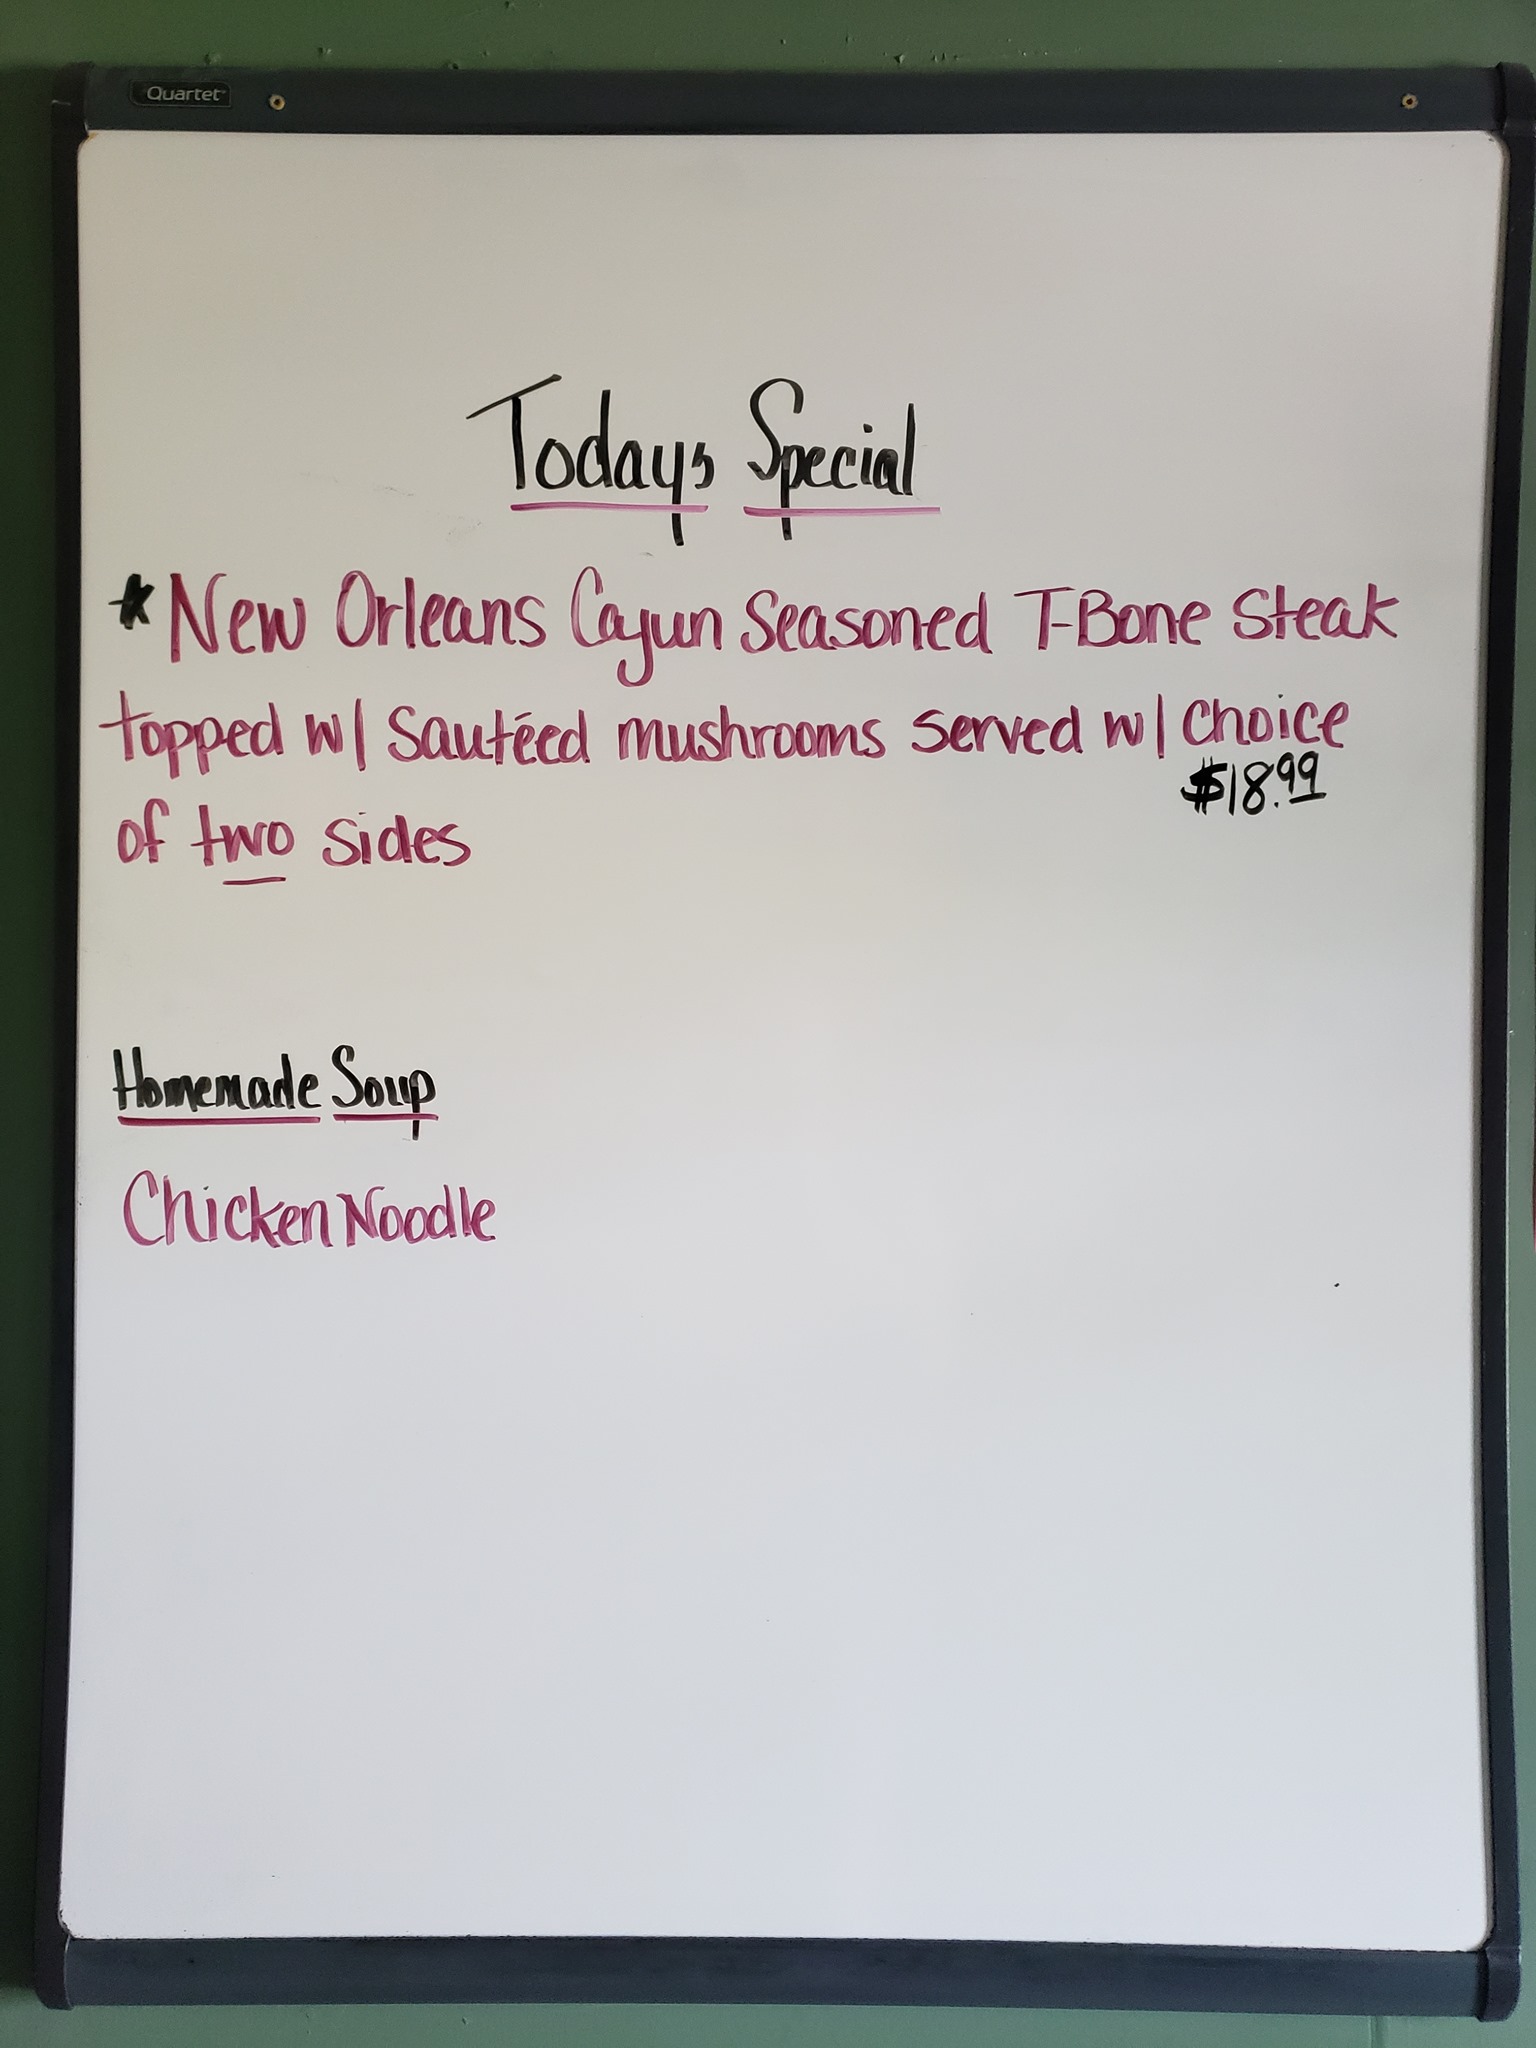 Quartet
Todays Special
*New Orleans Cajun Seasoned T-Bone Steak
topped w/ Sautéed mushrooms served w/ choice
$18.99
of two sides
Homemade Soup
Chicken Noodle